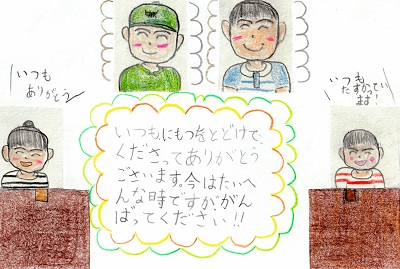 いつも
ありがとう
いつも
たすかってい
ます!
いつもにもつをとどけて、
くださってありがとう
ございます。今はたいへ
んな時ですが、がん
ばってください!!